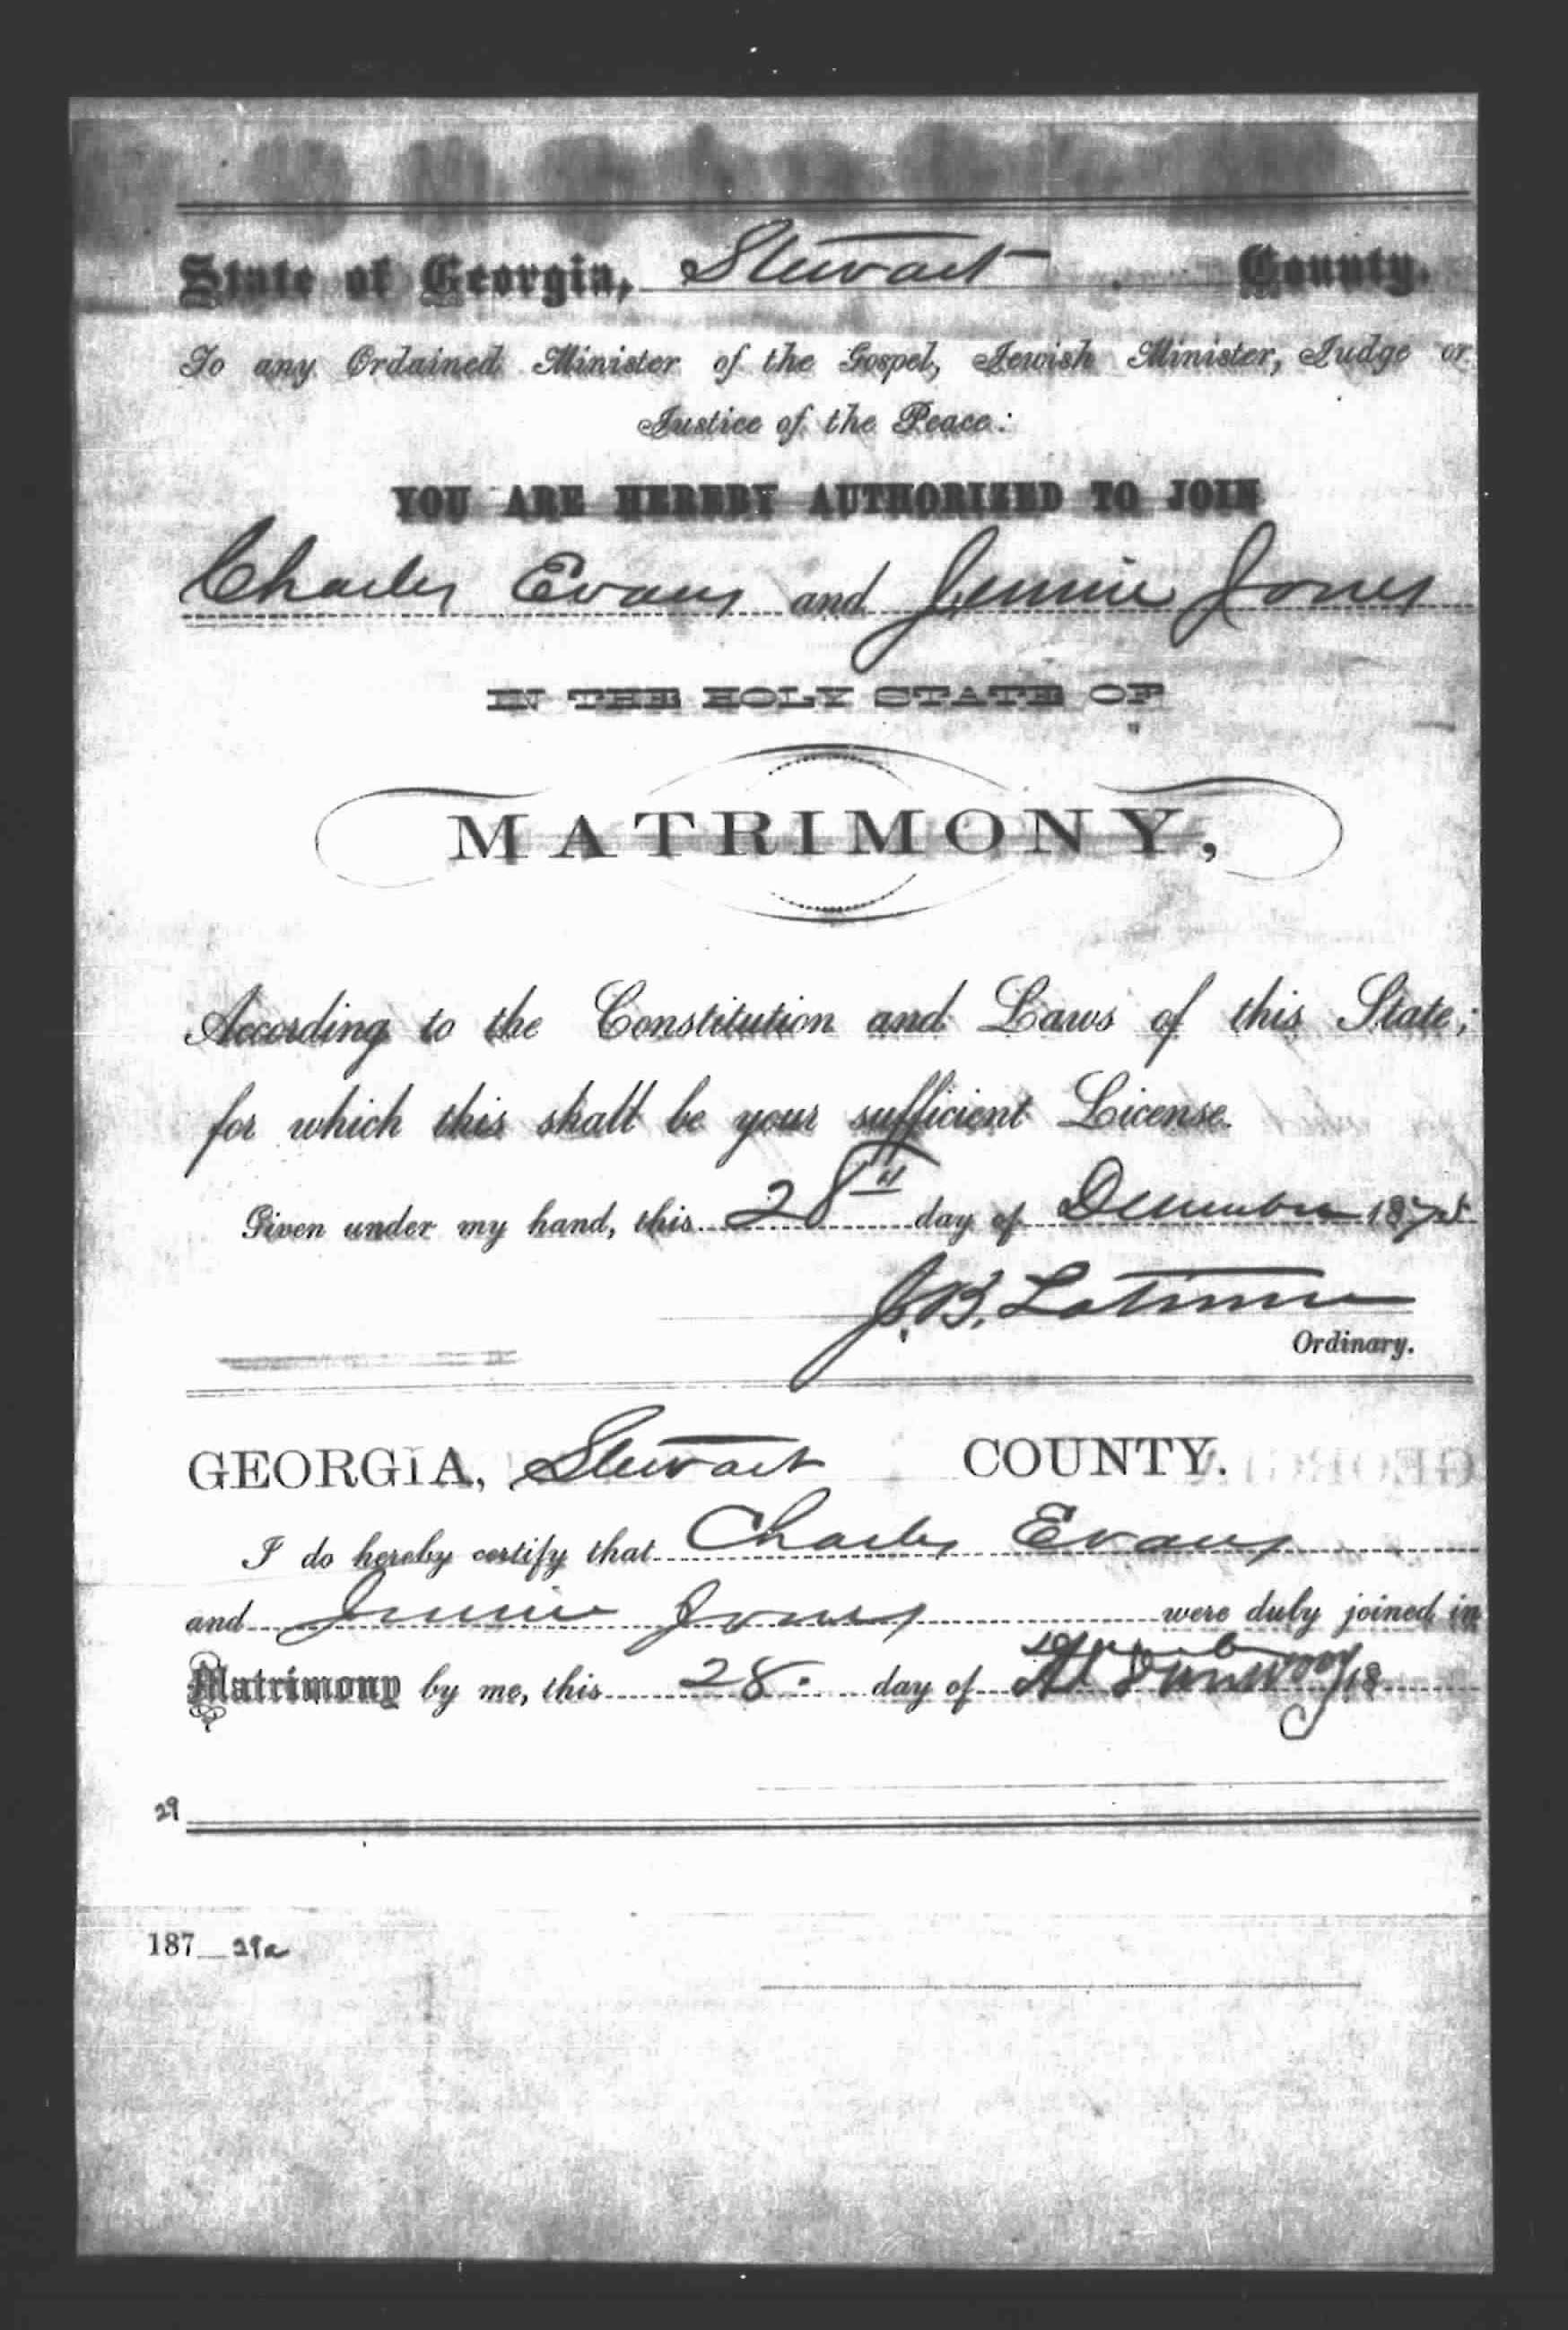 State of Georgia, Stewart County.
To any Ordained Minister of the Gospel, Jewish Minister, Judge or
Justice of the Peace:
YOU ARE HEREBY AUTHORIZED TO JOIN
Charles Evans and Jennie Jones
IN THE HOLY STATE OF
MATRIMONY,
According to the Constitution and Laws of this State;
for which this shall be your sufficient License.
Given under my hand, this 28th day of December 1875
J. B. Latimer
Ordinary.
GEORGIA, Stewart COUNTY.
I do hereby certify that Charles Evans
and Jennie Jones were duly joined in
Matrimony by me, this 28. day of 18
29
187 29a